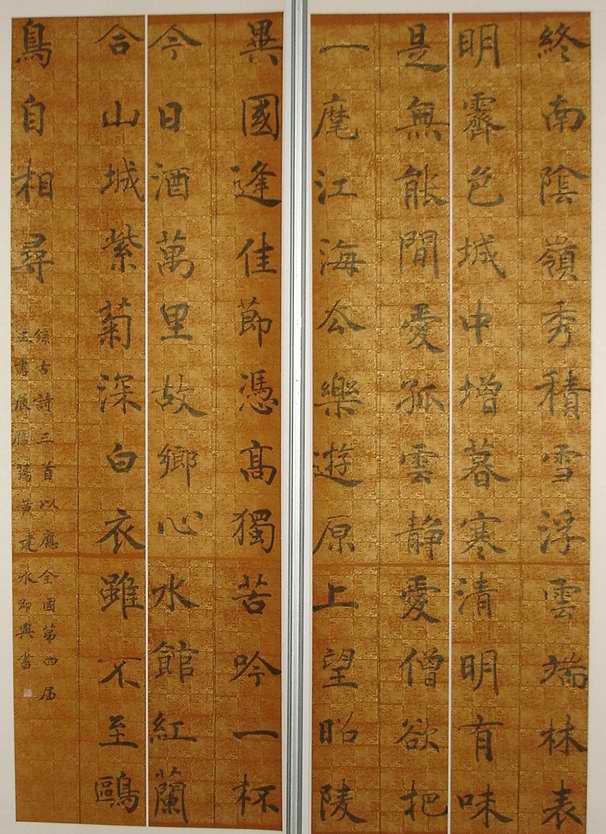 終南陰嶺秀積雪浮雲端林表
明霽色城中增暮寒清明有味
是無能間愛孤雲靜愛僧欲把
一麾江海去樂遊原上望昭陵
異國逢佳節憑高獨苦吟一杯
今日酒萬里故鄉心水館紅蘭
合山城紫菊深白衣雖不至鷗
鳥自相尋
錄古詩三首以應全國第四屆
書展 水即興書